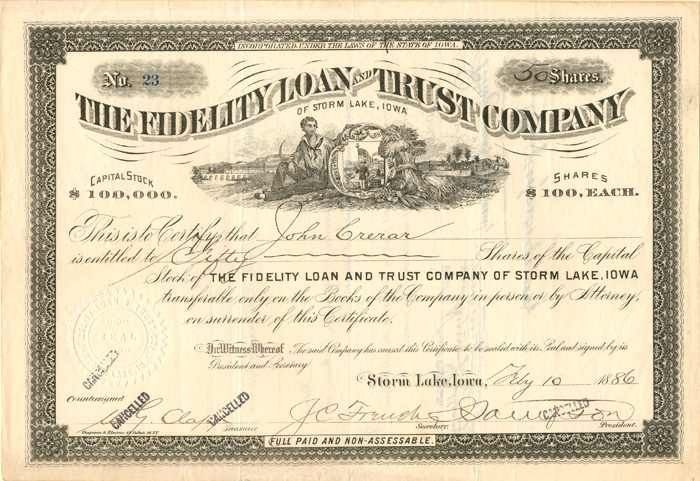 INCORPORATED UNDER THE LAWS OF THE STATE OF IOWA.
No. 23
50 Shares.
THE FIDELITY LOAN AND TRUST COMPANY
OF STORM LAKE, IOWA
CAPITAL STOCK
$ 100,000.
SHARES
$ 100, EACH.
This is to Certify that John Crerar
is entitled to Fifty Shares of the Capital
Stock of THE FIDELITY LOAN AND TRUST COMPANY OF STORM LAKE, IOWA
transferable only on the Books of the Company in person or by Attorney,
on surrender of this Certificate.
In Witness Whereof The said Company has caused this Certificate to be sealed with its Seal and signed by its
President and Secretary
Storm Lake, Iowa, Feby 10 1886
SEAL
CANCELLED
Countersigned
CANCELLED
CANCELLED
CANCELLED
J C French
Treasurer
Secretary.
President.
FULL PAID AND NON-ASSESSABLE.